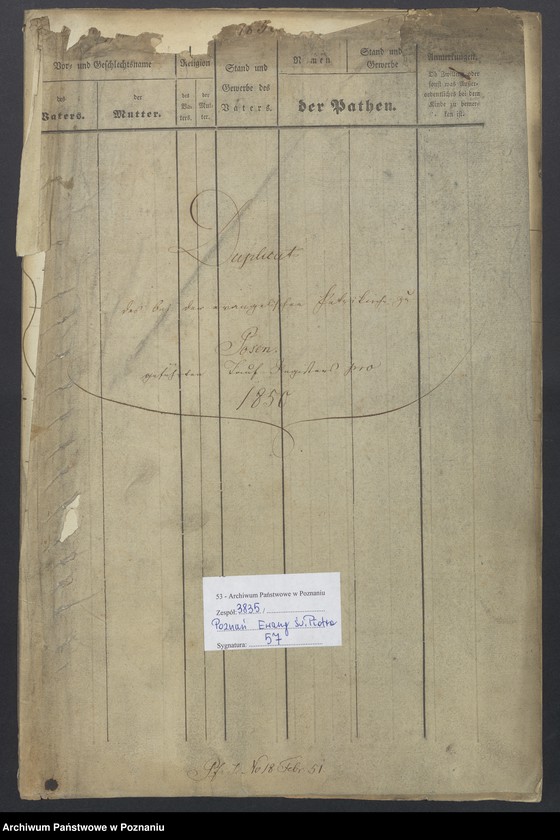 Vor- und Geschlechtsname
des Vaters.
der Mutter.
Religion
des Va-ters.
der Mut-ter.
Stand und
Gewerbe des
Vaters.
Namen
Stand und
Gewerbe
der Pathen.
Anmerkungen.
Ob Zwillinge oder
sonst was Außer-
ordentliches bei dem
Kinde zu bemer-
ken ist.
Duplicat
des bei der evangelischen Petrikirche zu
Posen
geführten Tauf-Registers pro
1850
53 - Archiwum Państwowe w Poznaniu
Zespół: 3835,
Poznań Ewang św. Piotra
Sygnatura: 57
No 18 Febr. 51
Archiwum Państwowe w Poznaniu